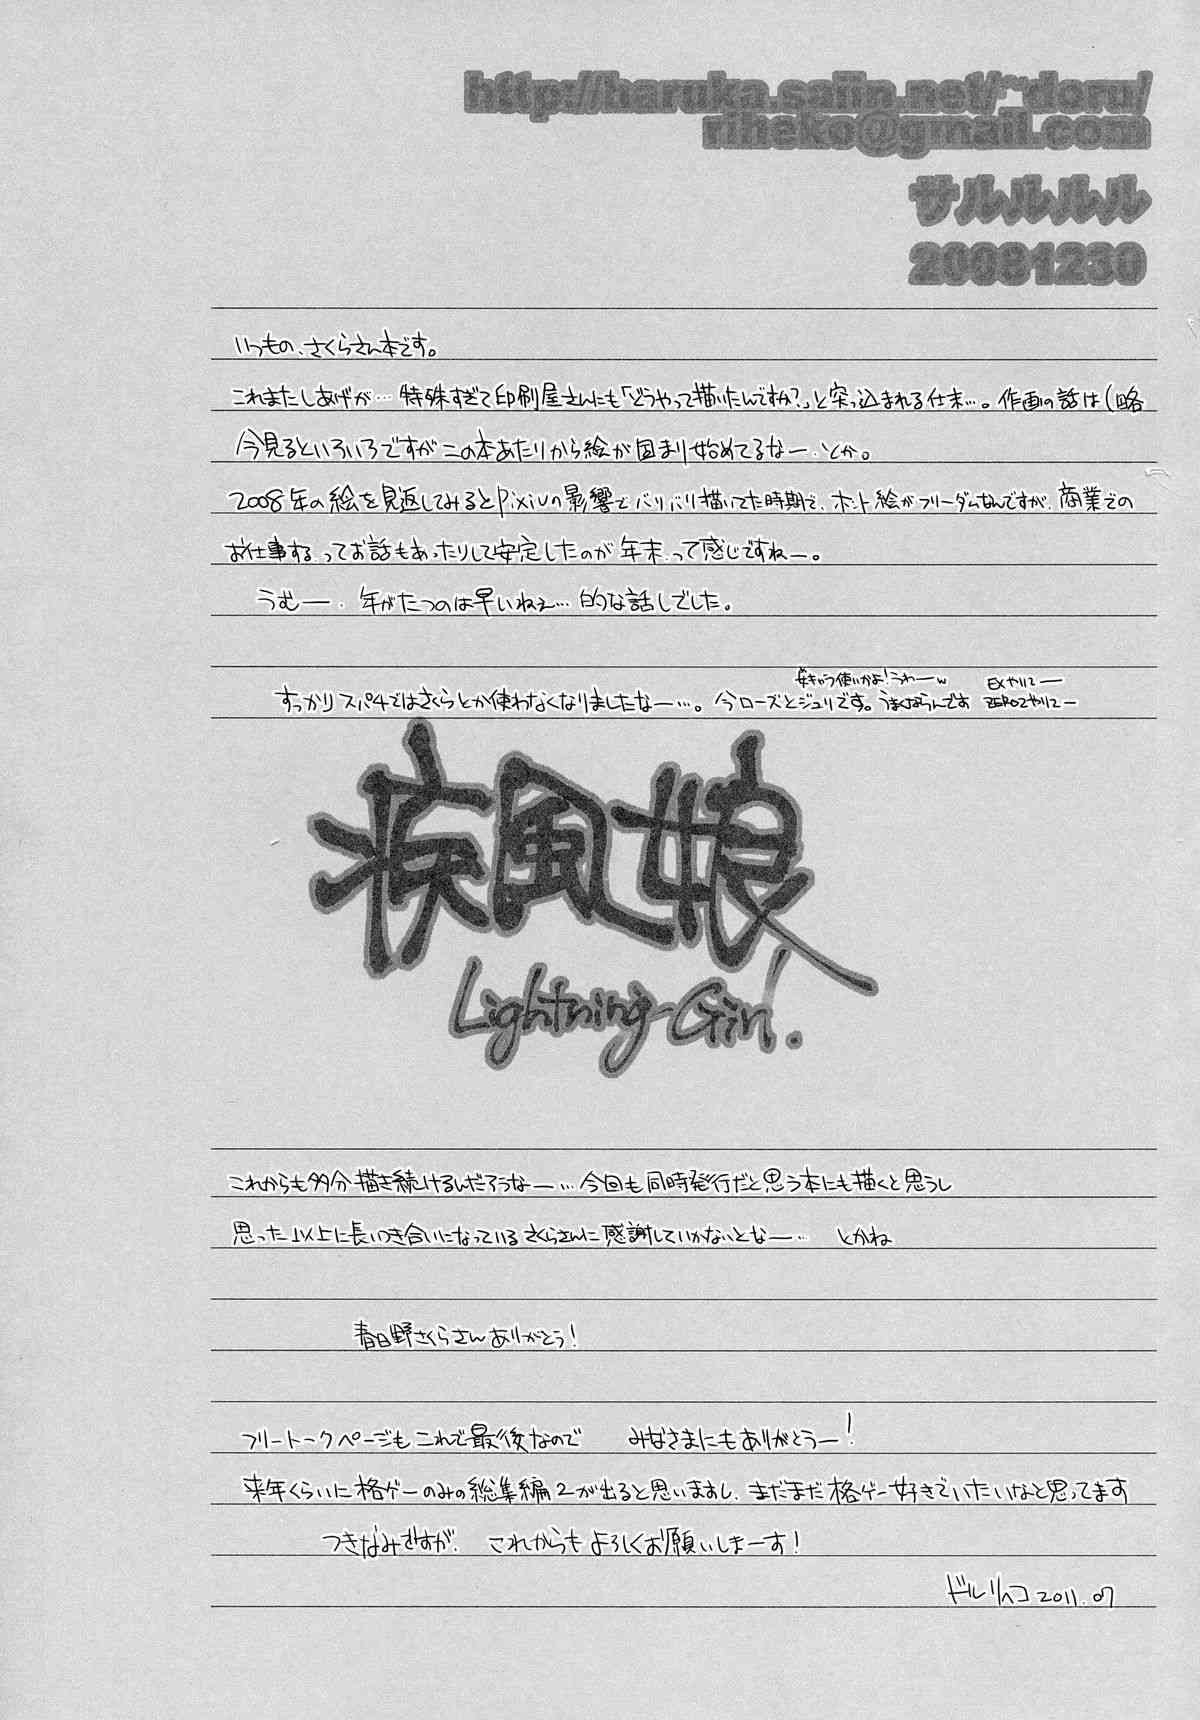 http://haruka.saiin.net/~doru/
riheko@gmail.com
サルルルル
20081230
いつもの、さくらさん本です。
これまたしあげが…特殊すぎて印刷屋さんにも「どうやって描いたんですか?」と突っ込まれる仕末…。作画の話は(略
今見るといろいろですがこの本あたりから絵が固まり始めてるなー、とか。
2008年の絵を見返してみるとpixivの影響でバリバリ描いてた時期で、ホント絵がフリーダムなんですが、商業での
お仕事するってお話もあったりして安定したのが年末って感じですねー。
うむー、年がたつのは早いねぇ…的な話しでした。
女キャラ使いかよ!うわーw
EXやりてー
すっかりスパ4ではさくらとか使わなくなりましたなー…。今ローズとジュリです。うまくならんです
ZERO2やりてー
疾風娘
Lightning-Girl.
これからも多分描き続けるんだろうなー…今回も同時発行だと思う本にも描くと思うし
思った以上に長いつき合いになっているさくらさんに感謝していかないとなー…とかね
春日野さくらさんありがとう!
フリートークページもこれで最後なので みなさまにもありがとうー!
来年くらいに格ゲーのみの総集編2が出ると思いますし、まだまだ格ゲー好きでいたいなと思ってます
つきなみですが、これからもよろしくお願いしまーす!
ドルリヘコ 2011.07